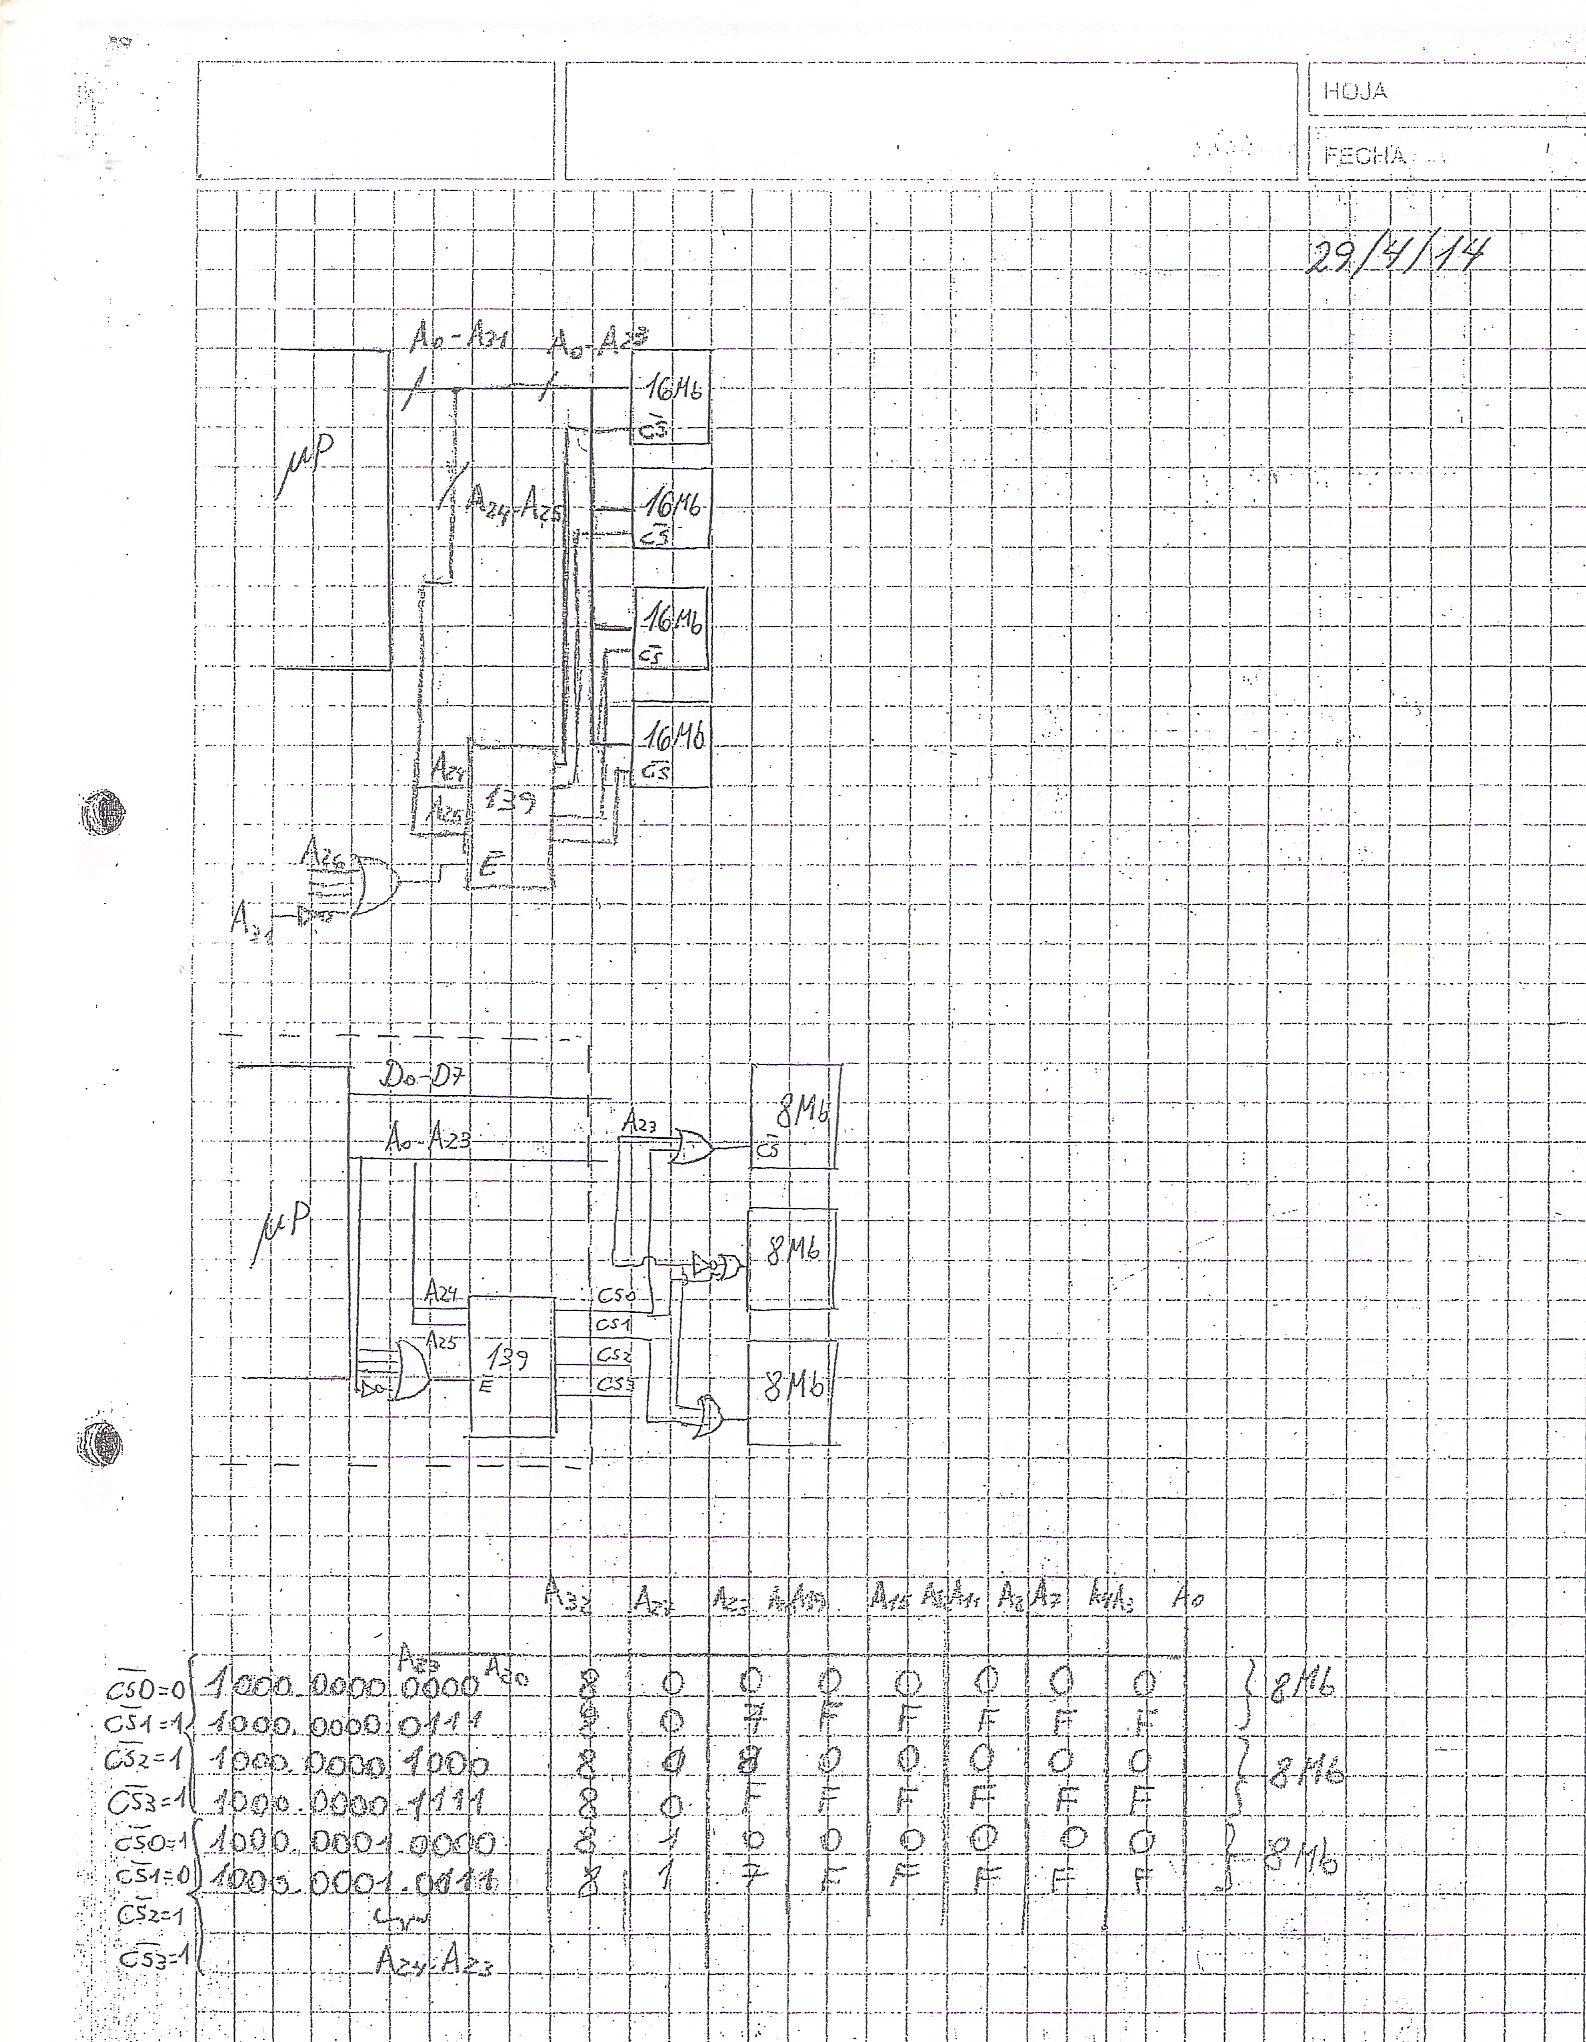 HOJA
FECHA
29/4/14
A0-A31 A0-A23
16Mb
CS
μP
A24-A25
16Mb
CS
16Mb
CS
16Mb
CS
A24
139
A25
A26
E
A31
D0-D7
8Mb
A23
A0-A23
CS
μP
8Mb
A24
CS0
CS1
A25
139
CS2
8Mb
E
CS3
A32 A27 A23 A19 A15 A11 A8 A7 A4 A3 A0
A23 A20
CS0=0 1000.0000.0000 8 0 0 0 0 0 0 0 8Mb
CS1=1 1000.0000.0111 8 0 7 F F F F F
CS2=1 1000.0000.1000 8 0 8 0 0 0 0 0 8Mb
CS3=1 1000.0000.1111 8 0 F F F F F F
CS0=1 1000.0001.0000 8 1 0 0 0 0 0 0 8Mb
CS1=0 1000.0001.0111 8 1 7 F F F F F
CS2=1
CS3=1 A24-A23